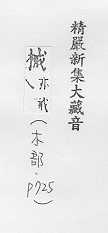 精嚴新集大藏音
亦戒(木部·P725)